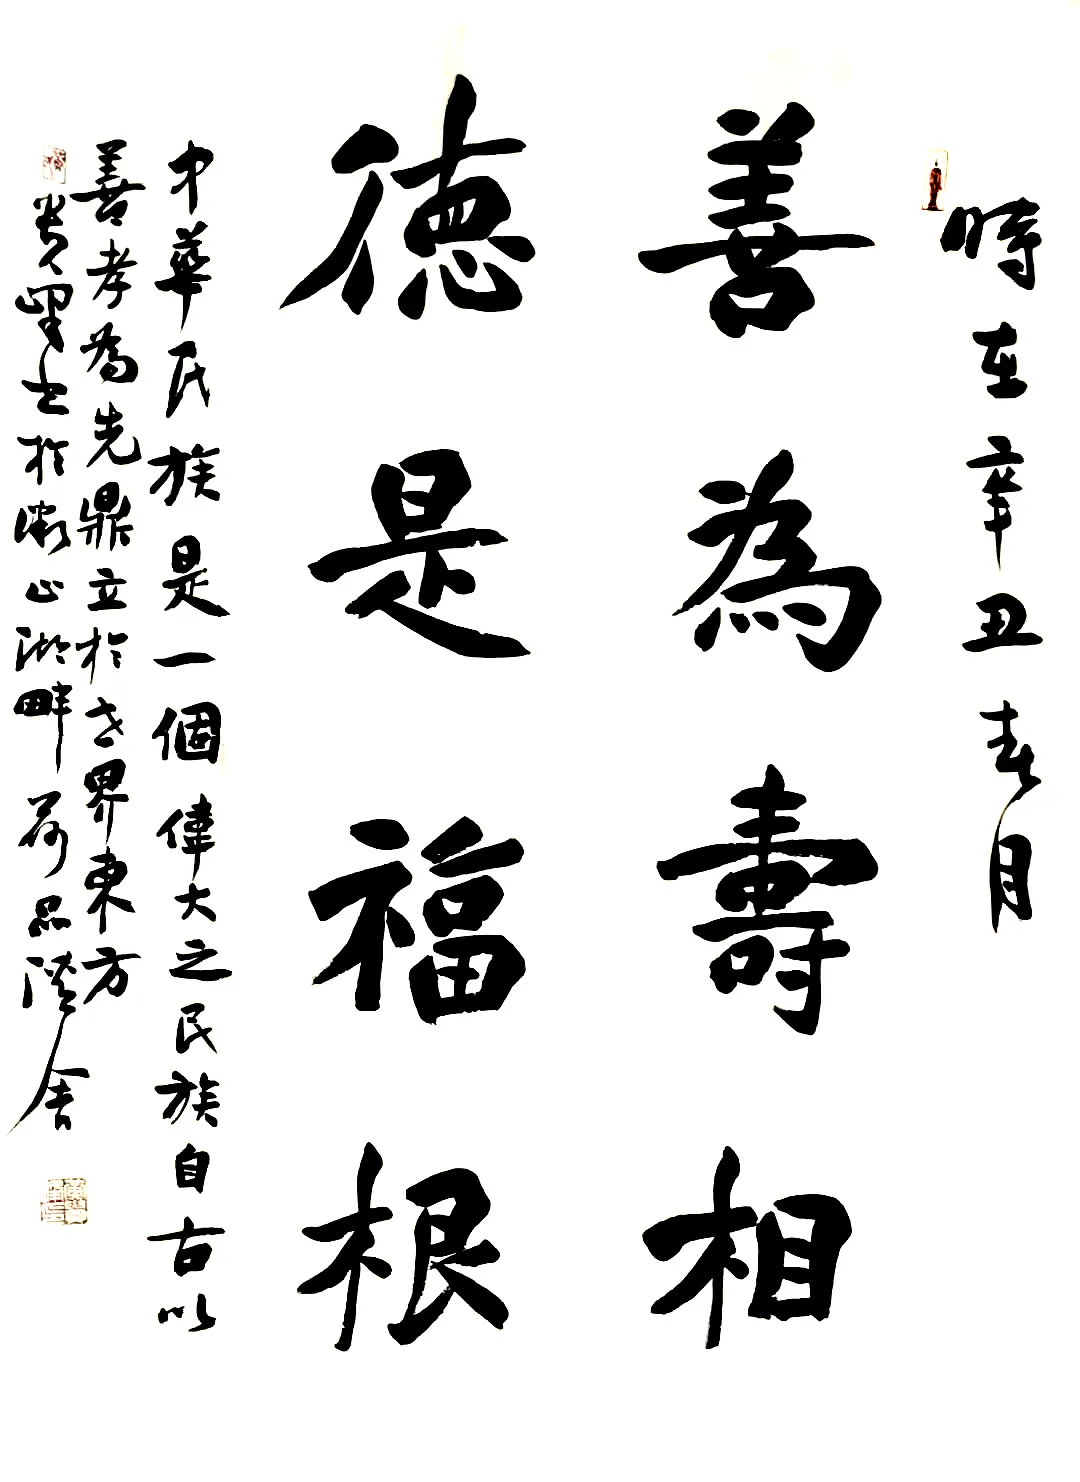 時在辛丑春月
善為壽相
德是福根
中華民族是一個偉大之民族自古以
善孝為先鼎立於世界東方
貴望書於微山湖畔荷品濤舍